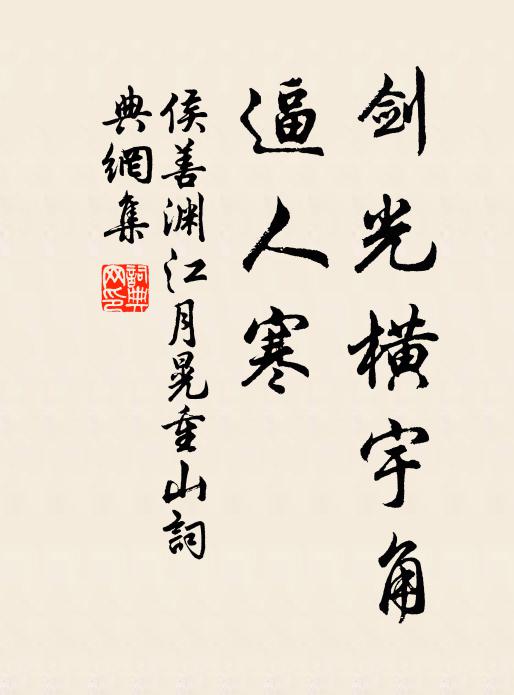 剑光横宇角
逼人寒
侯善渊江月晃重山詞
典網集
詞典网印